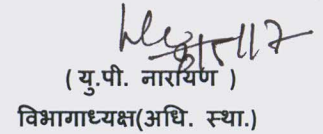 ( यु.पी. नारायण )
विभागाध्यक्ष(अधि. स्था.)